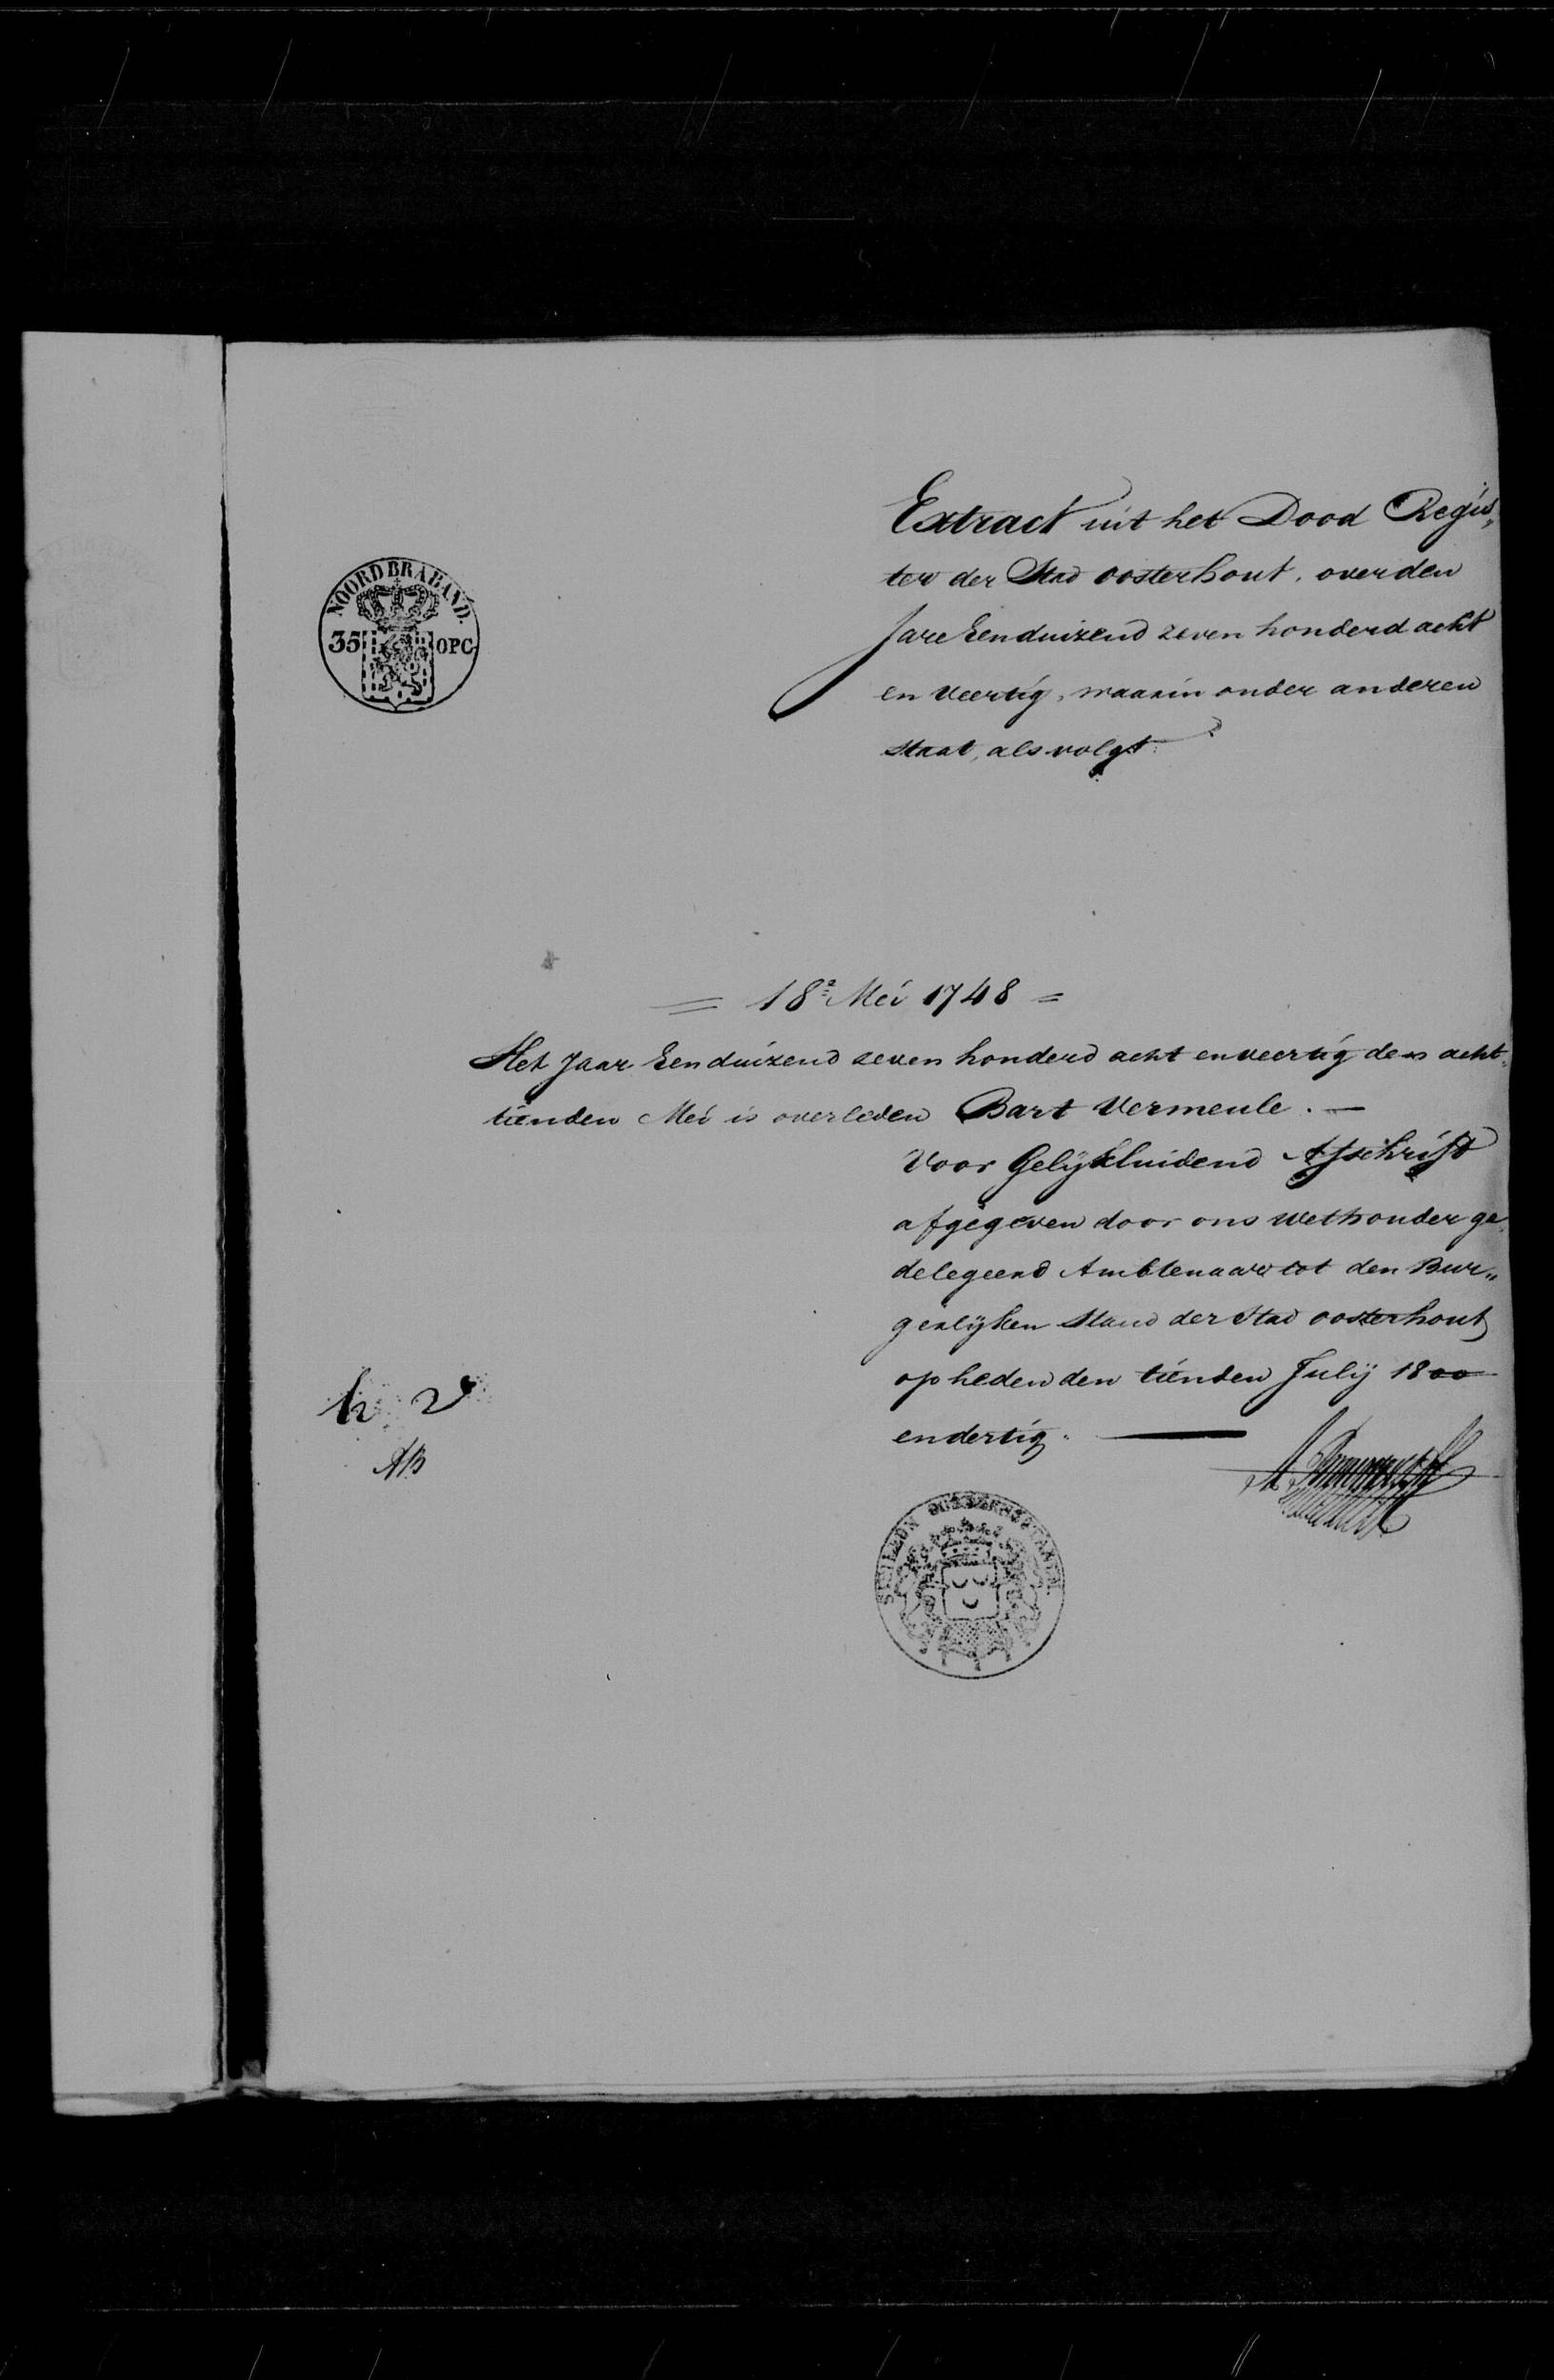 Extract uit het Dood Regis„
ter der Stad oosterhout, over den
Jare Eenduizend zeven honderd acht
en veertig, waarin onder anderen
staat, als volgt.
NOORD BRABAND.
35 OPC.
= 18e Mei 1748 =
Het Jaar Eenduizend zeven honderd acht en veertig den acht„
tienden Mei is overleden Bart Vermeule. —
Voor Gelykluidend Afschrift
afgegeven door ons wethouder ge„
delegeerd Ambtenaar tot den Bur„
gerlyken Stand der Stad oosterhout
op heden den tienden July 1800
en dertig. —
h v
AB